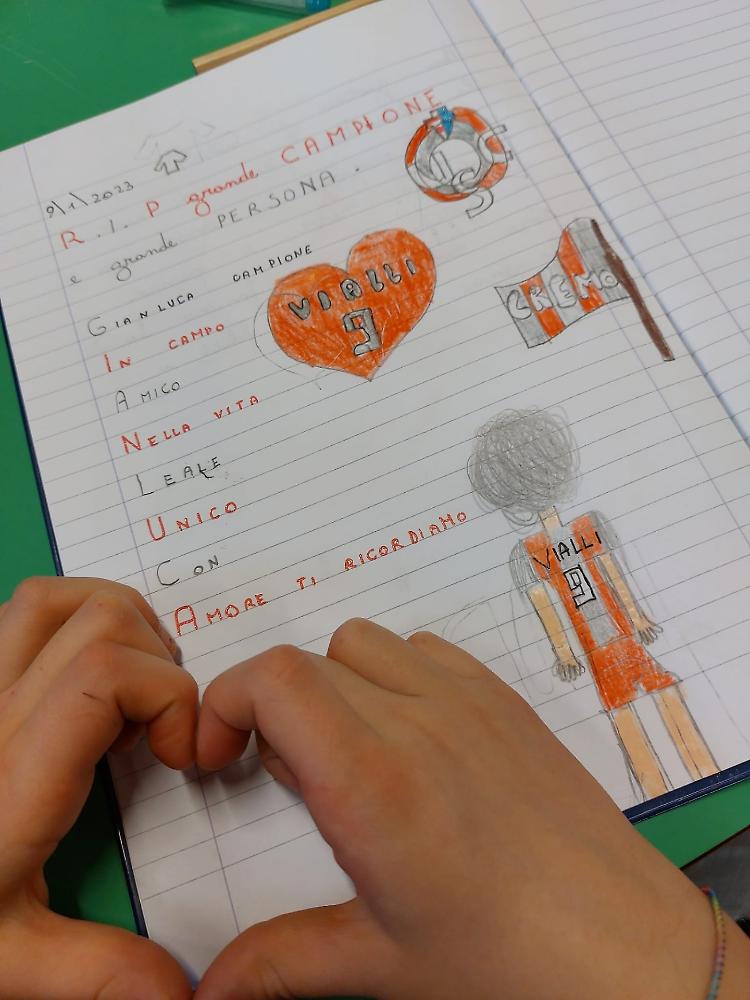 9/1/2023
R.I.P grande CAMPIONE
e grande PERSONA.
GIANLUCA CAMPIONE
IN CAMPO
AMICO
NELLA VITA
LEALE
UNICO
CON
AMORE TI RICORDIAMO
VIALLI
9
CREMO
VIALLI
9